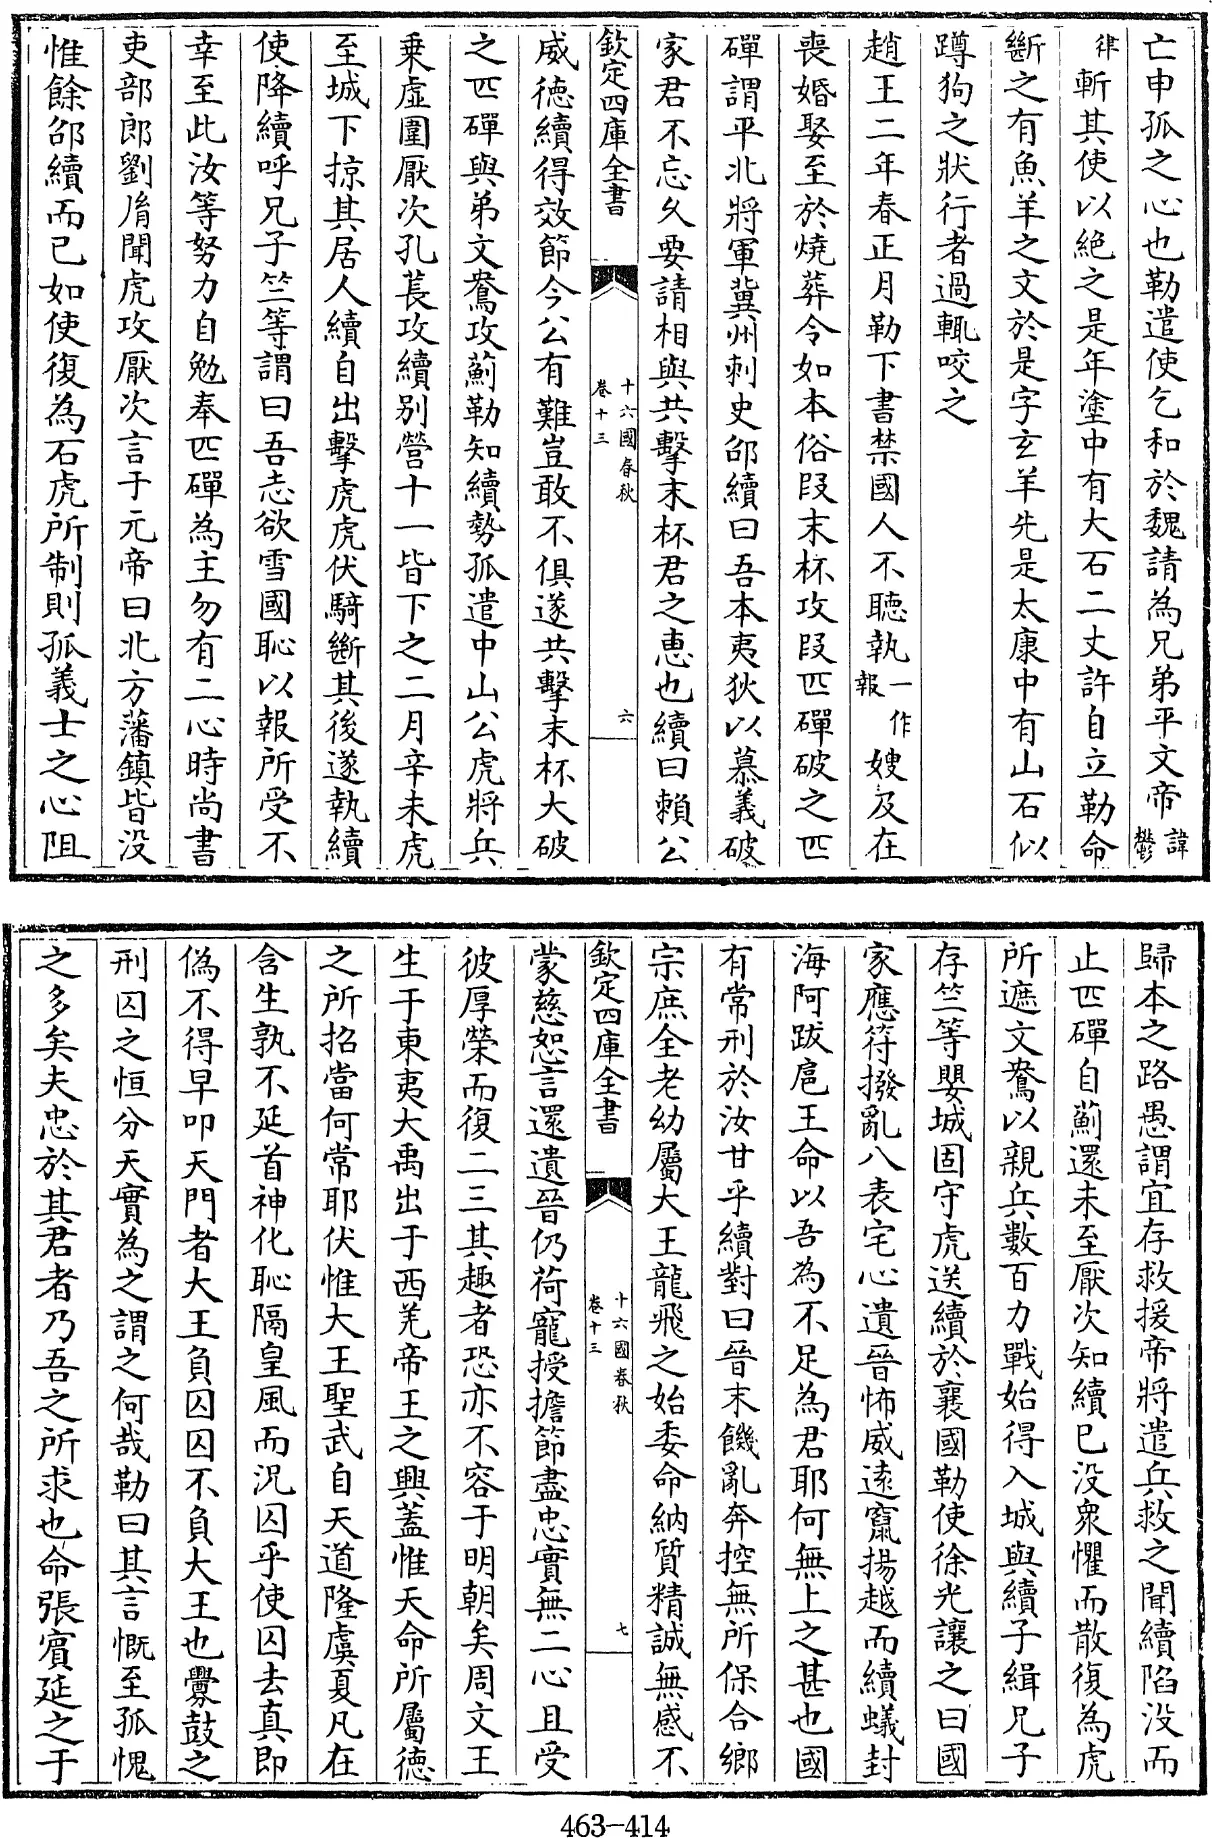 亡申孤之心也勒遣使乞和於魏請為兄弟平文帝諱鬱
律斬其使以絶之是年塗中有大石二丈許自立勒命
斲之有魚羊之文於是字玄羊先是太康中有山石似
蹲狗之狀行者過輒咬之
趙王二年春正月勒下書禁國人不聽執一作報嫂及在
喪婚娶至於燒葬令如本俗段末柸攻段匹磾破之匹
磾謂平北將軍冀州刺史邵續曰吾本夷狄以慕義破
家君不忘久要請相與共擊末杯君之惠也續曰賴公
欽定四庫全書
十六國春秋
卷十三
六
威德續得效節今公有難豈敢不俱遂共擊末杯大破
之匹磾與弟文鴦攻薊勒知續勢孤遣中山公虎將兵
乗虛圍厭次孔萇攻續别營十一皆下之二月辛未虎
至城下掠其居人續自出擊虎虎伏騎斷其後遂執續
使降續呼兄子竺等謂曰吾志欲雪國恥以報所受不
幸至此汝等努力自勉奉匹磾為主勿有二心時尚書
吏部郎劉胤聞虎攻厭次言于元帝曰北方藩鎮皆没
惟餘邵續而已如使復為石虎所制則孤義士之心阻
歸本之路愚謂宜存救援帝將遣兵救之聞續陷没而
止匹磾自薊還未至厭次知續已没衆懼而散復為虎
所遮文鴦以親兵數百力戰始得入城與續子緝兄子
存竺等嬰城固守虎送續於襄國勒使徐光讓之曰國
家應符撥亂八表宅心遺晉怖威逺竄揚越而續蟻封
海阿跋扈王命以吾為不足為君耶何無上之甚也國
有常刑於汝甘乎續對曰晉末饑亂奔控無所保合鄉
宗庶全老幼屬大王龍飛之始委命納質精誠無感不
欽定四庫全書
十六國春秋
卷十三
七
蒙慈恕言還遺晉仍荷寵授擔節盡忠實無二心且受
彼厚榮而復二三其趣者恐亦不容于明朝矣周文王
生于東夷大禹出于西羌帝王之興蓋惟天命所屬德
之所招當何常耶伏惟大王聖武自天道隆虞夏凡在
含生孰不延首神化恥隔皇風而況囚乎使囚去真即
偽不得早叩天門者大王負囚囚不負大王也釁鼓之
刑囚之恒分天實為之謂之何哉勒曰其言慨至孤愧
之多矣夫忠於其君者乃吾之所求也命張賓延之于
463-414